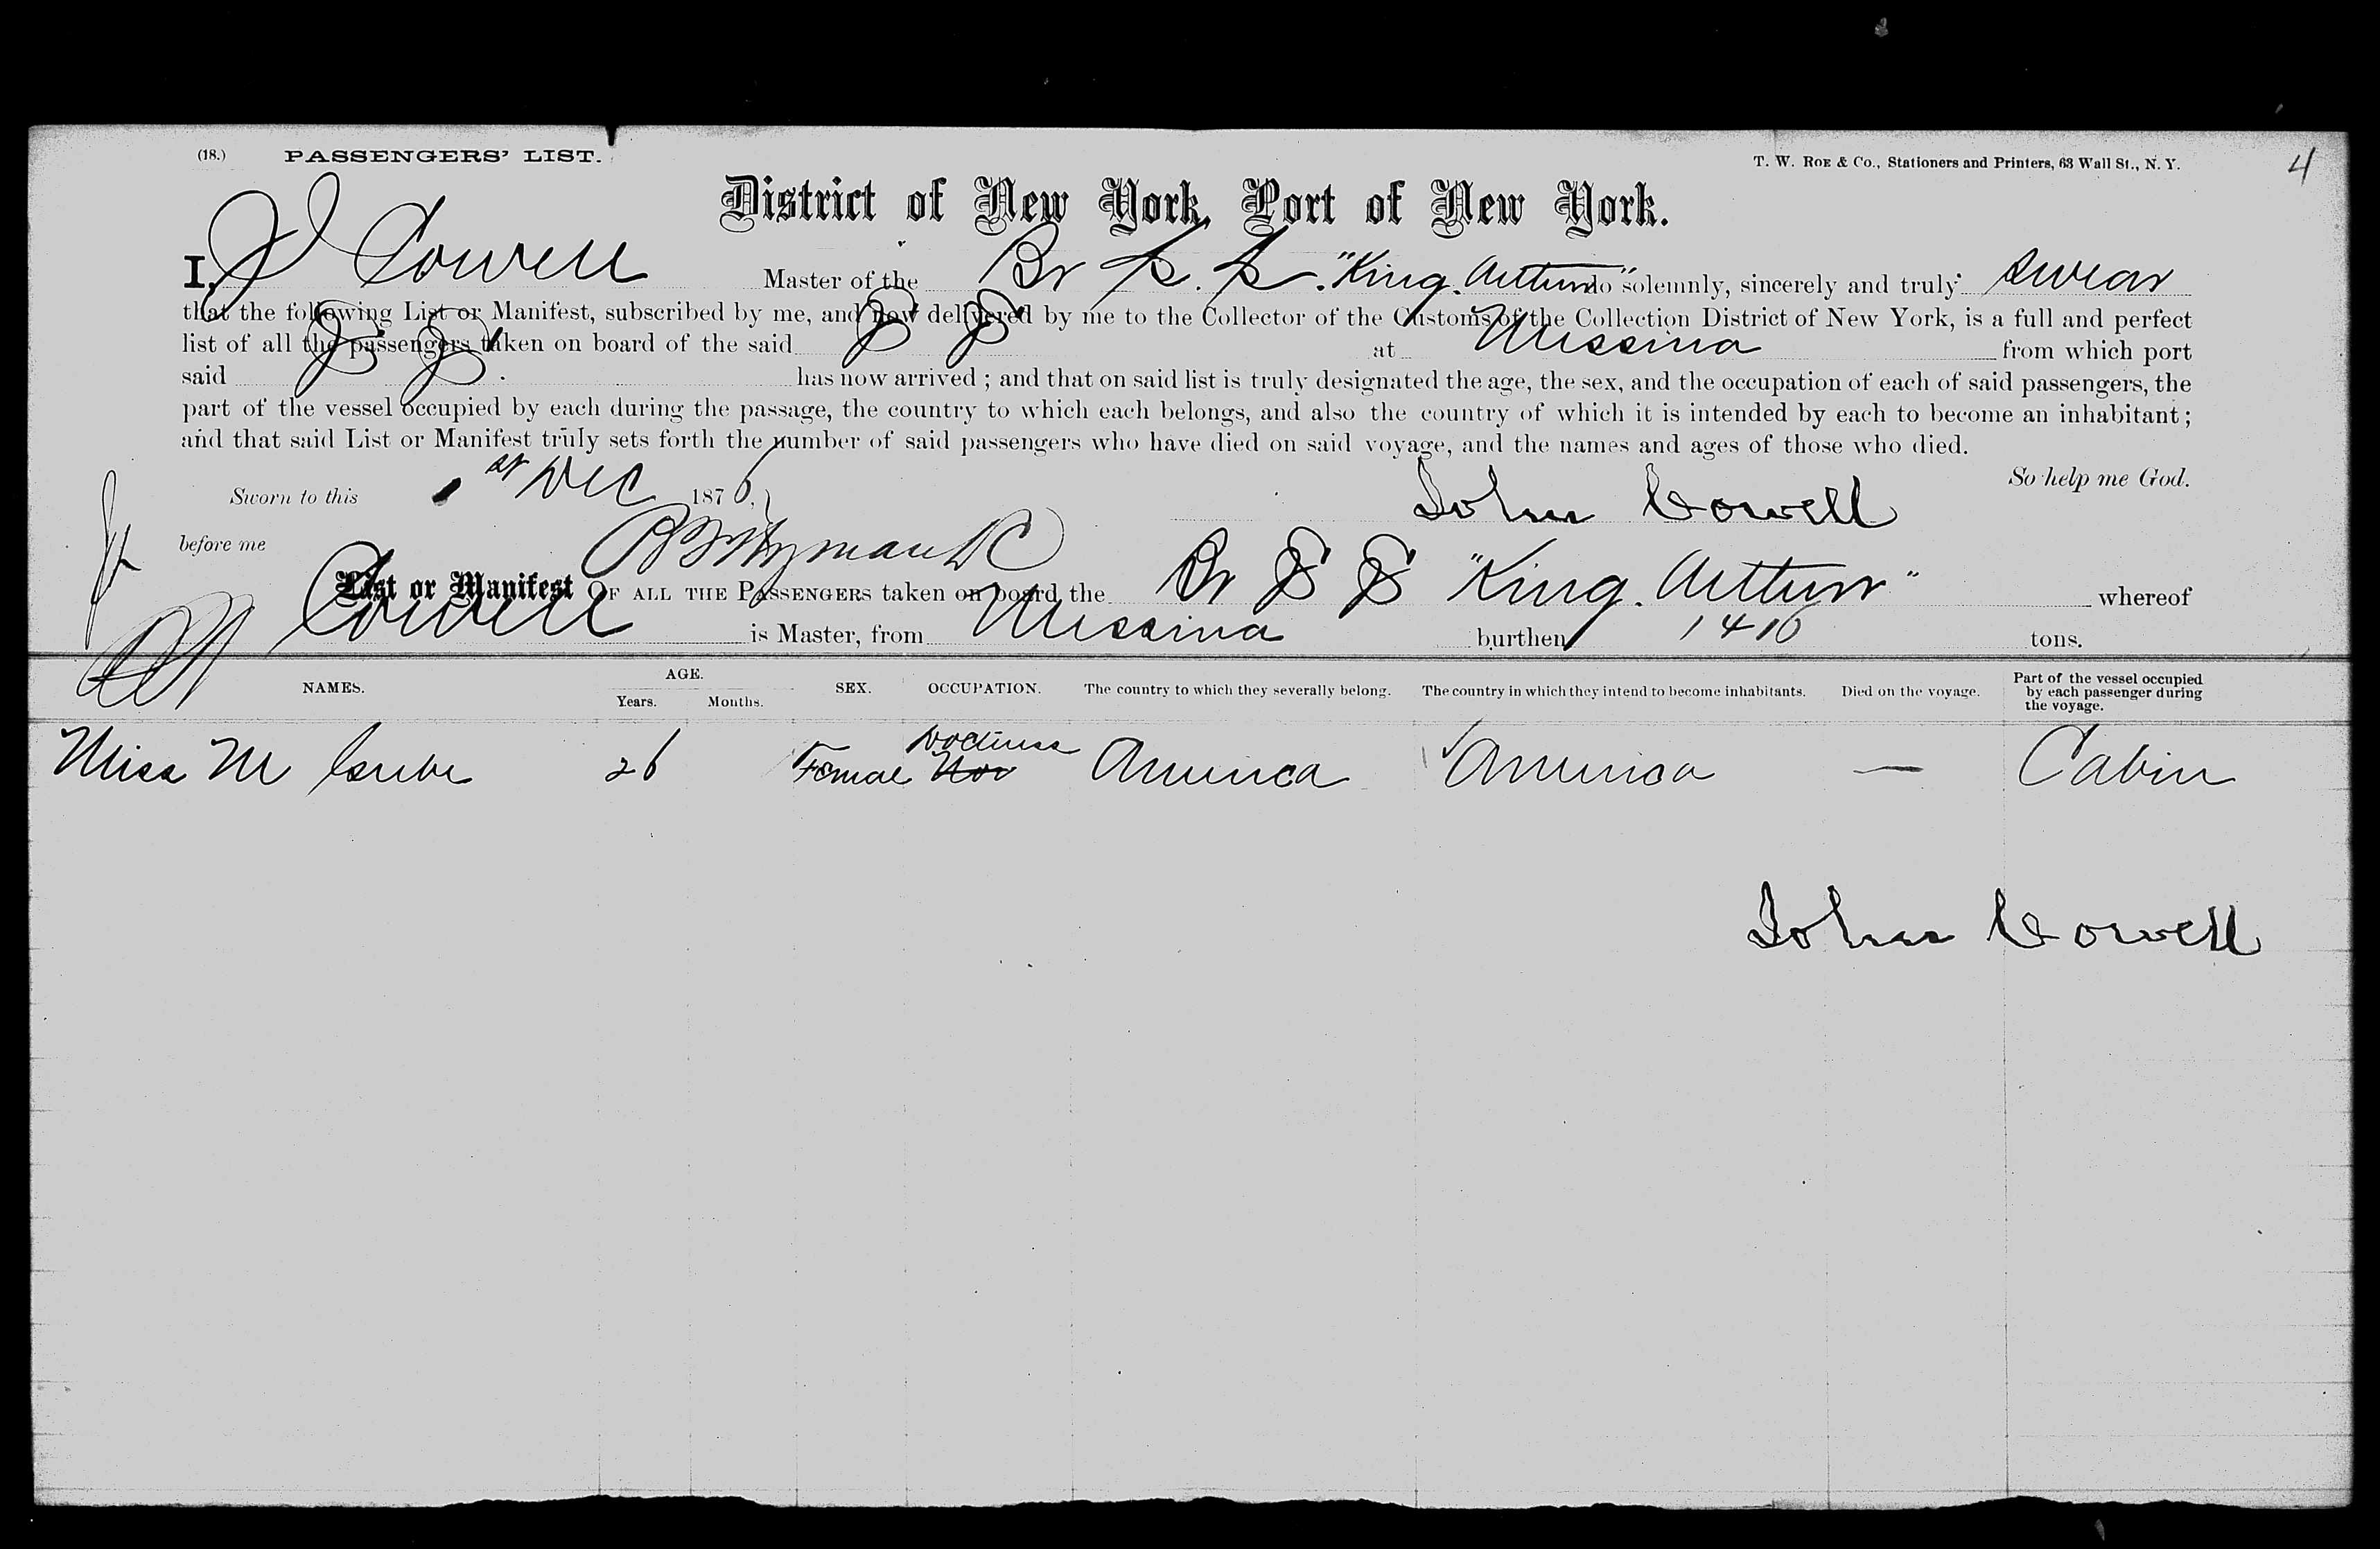 (18.) PASSENGERS' LIST.
T. W. Roe & Co., Stationers and Printers, 63 Wall St., N. Y.
4
District of New York, Port of New York.
I, J Cowell Master of the Br S. S. "King Arthur" do solemnly, sincerely and truly swear
that the following List or Manifest, subscribed by me, and now delivered by me to the Collector of the Customs of the Collection District of New York, is a full and perfect
list of all the passengers taken on board of the said S S at Messina from which port
said S S. has now arrived ; and that on said list is truly designated the age, the sex, and the occupation of each of said passengers, the
part of the vessel occupied by each during the passage, the country to which each belongs, and also the country of which it is intended by each to become an inhabitant ;
and that said List or Manifest truly sets forth the number of said passengers who have died on said voyage, and the names and ages of those who died.
So help me God.
Sworn to this 1st Dec 1876,
John Cowell
before me
List or Manifest OF ALL THE PASSENGERS taken on board the Br S S "King Arthur" whereof
Cowell is Master, from Messina burthen 1416 tons.
NAMES. AGE. Years. Months. SEX. OCCUPATION. The country to which they severally belong. The country in which they intend to become inhabitants. Died on the voyage. Part of the vessel occupied by each passenger during the voyage.
Miss M 26 Female America America — Cabin
John Cowell